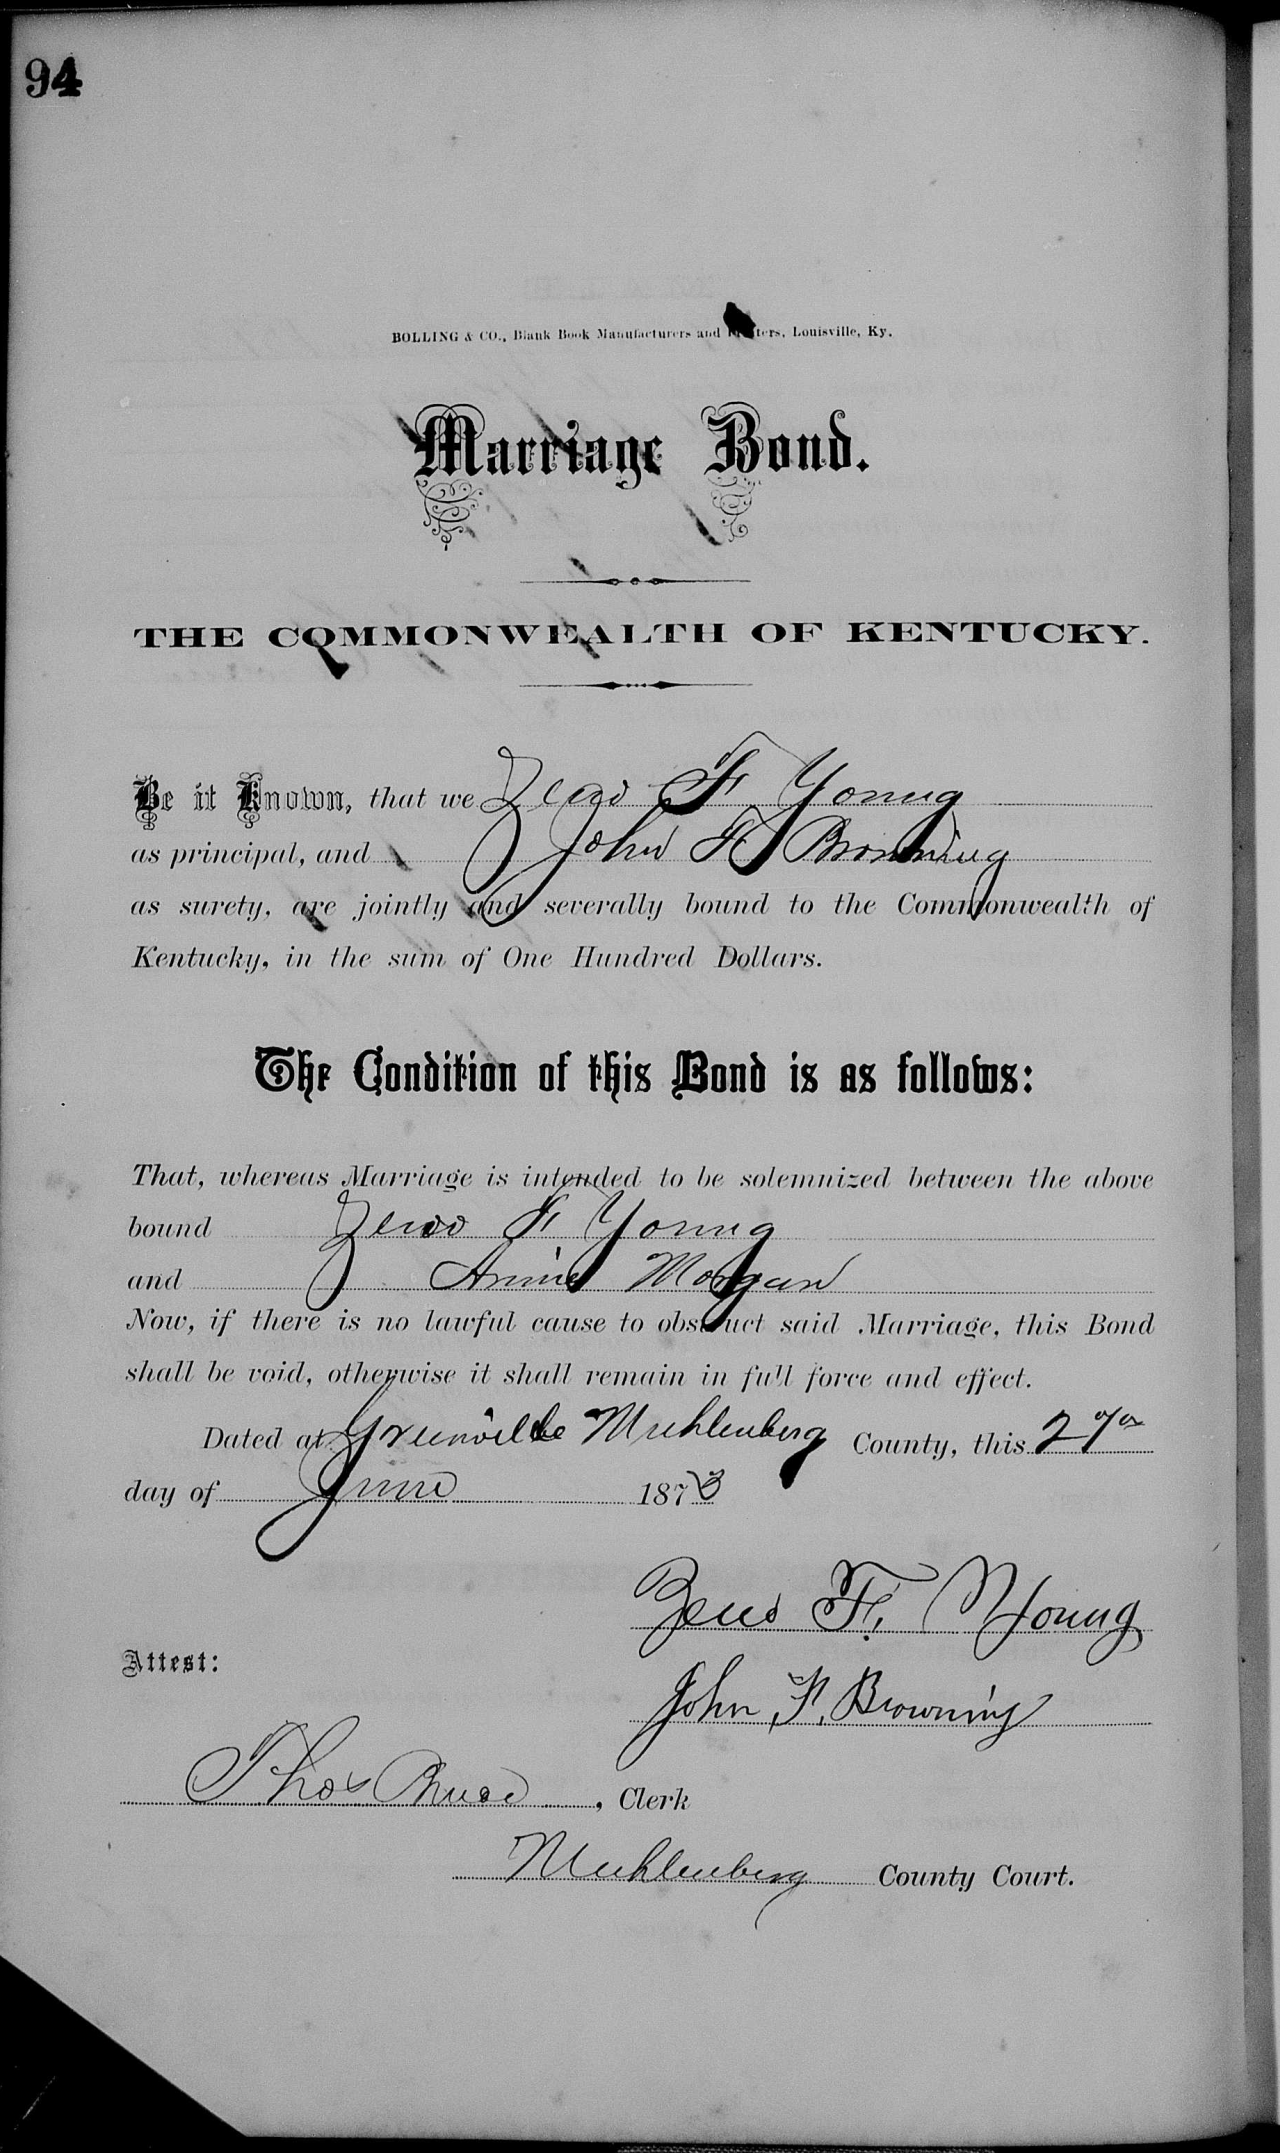 94
BOLLING & CO., Blank Book Manufacturers and Printers, Louisville, Ky.
Marriage Bond.
THE COMMONWEALTH OF KENTUCKY.
Be it Known, that we Zeno F Young
as principal, and John F Browning
as surety, are jointly and severally bound to the Commonwealth of
Kentucky, in the sum of One Hundred Dollars.
The Condition of this Bond is as follows:
That, whereas Marriage is intended to be solemnized between the above
bound Zeno F Young
and Annie Morgan
Now, if there is no lawful cause to obstruct said Marriage, this Bond
shall be void, otherwise it shall remain in full force and effect.
Dated at Greenville Muhlenberg County, this
day of June 1873
Zeno F. Young
John F. Browning
Attest:
Thos Bruce, Clerk
Muhlenberg County Court.